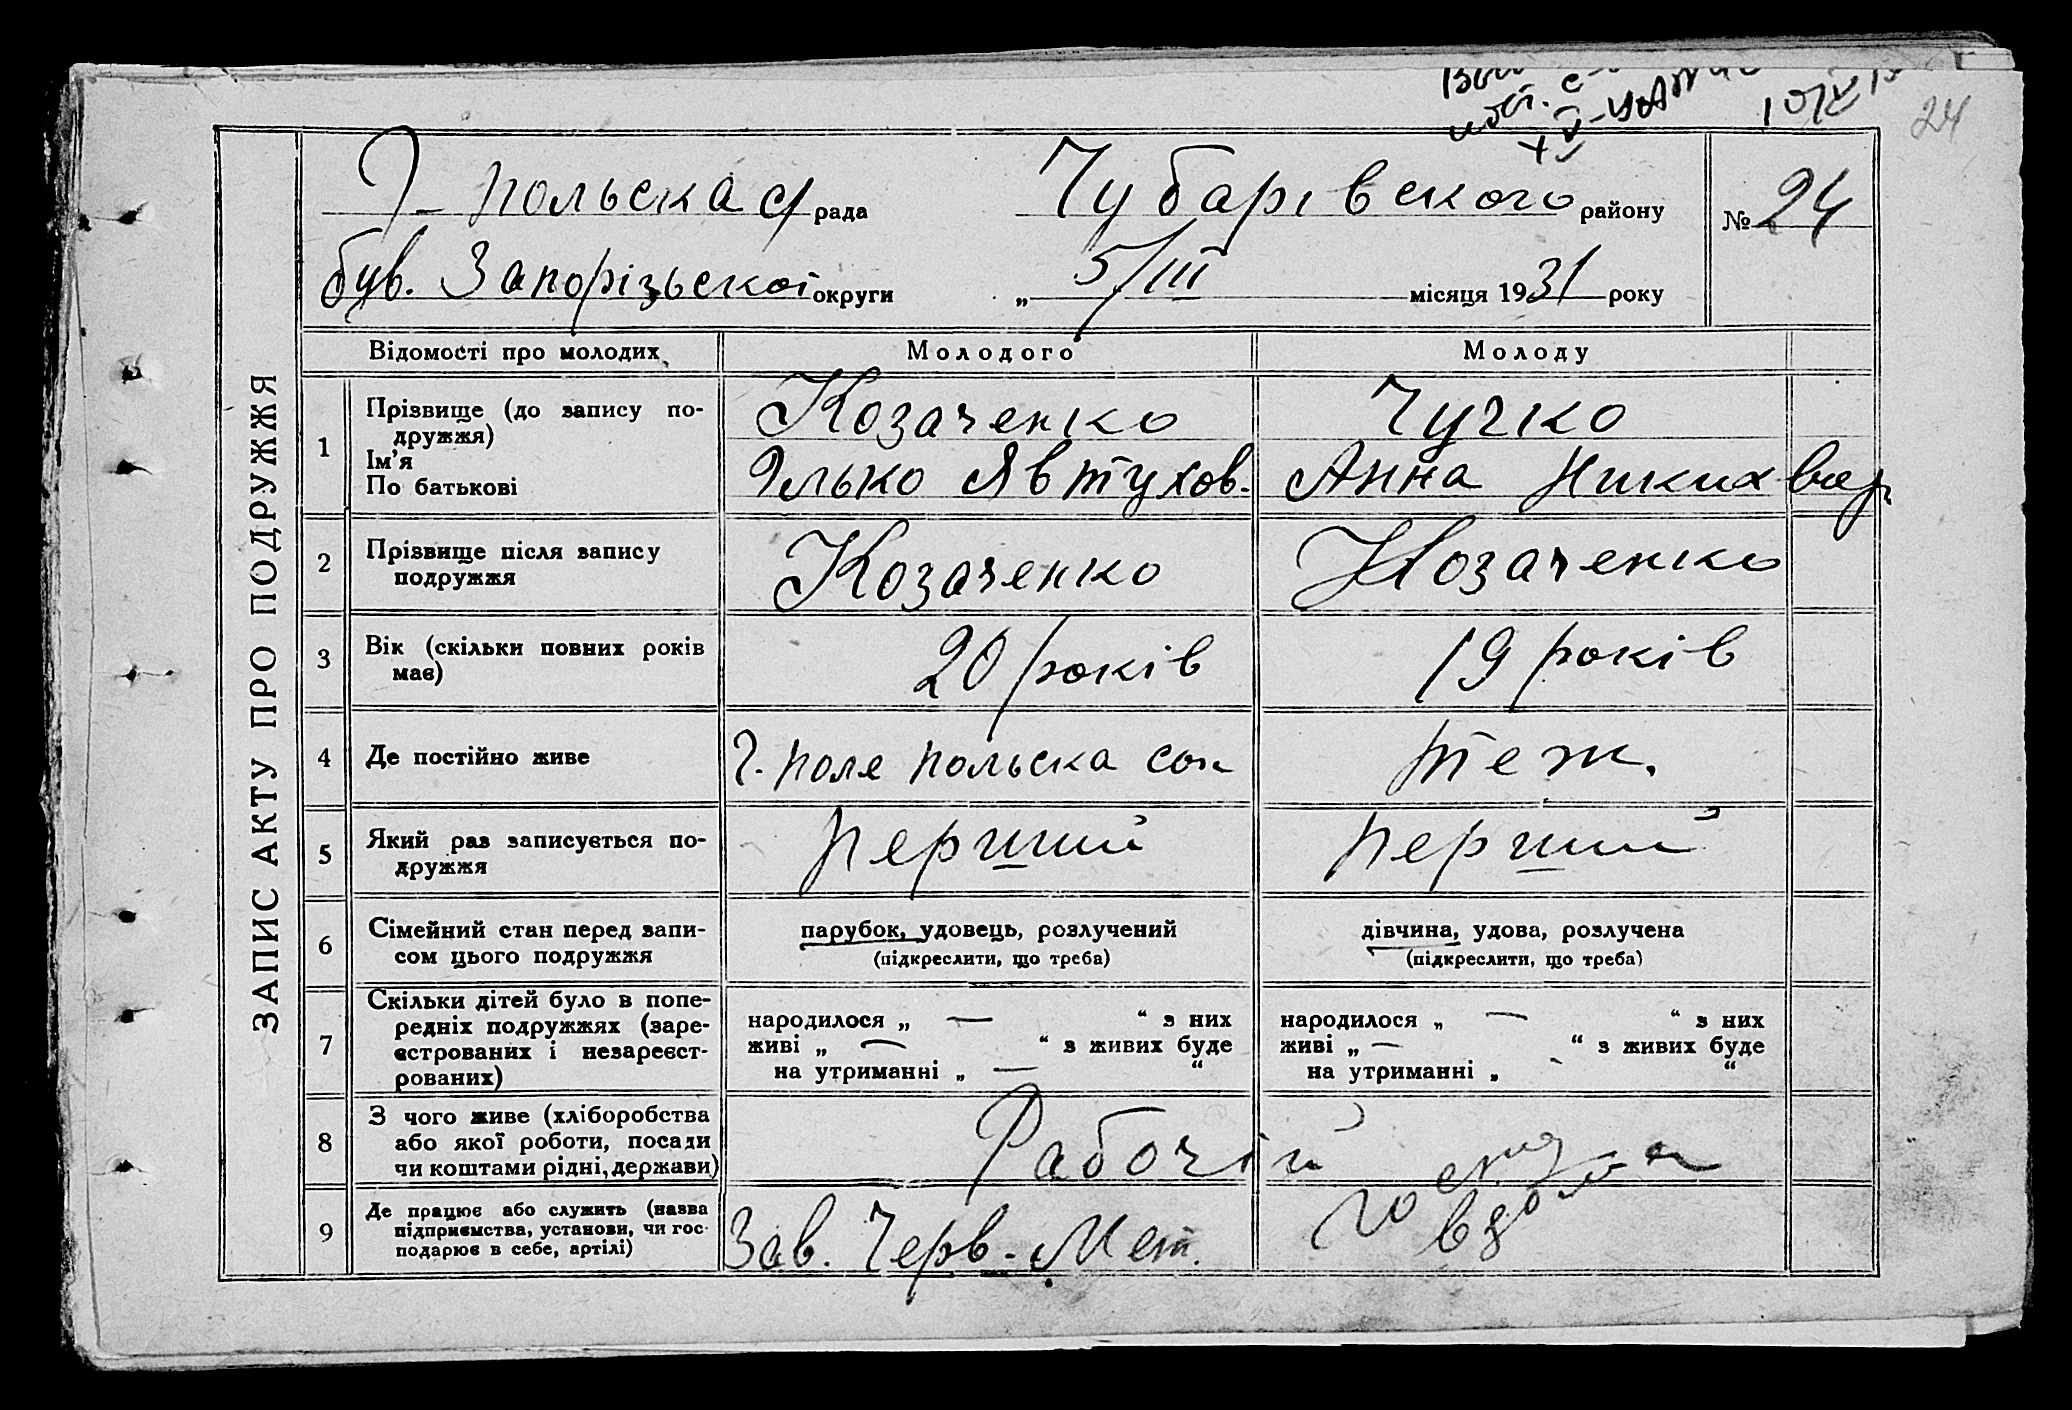 24
Г-польска с/рада Чубарівского району № 24
був. Запорізьскоі округи „ 5/III місяця 1931 року
ЗАПИС АКТУ ПРО ПОДРУЖЖЯ
Відомості про молодих Молодого Молоду
1 Прізвище (до запису по-
дружжя)
Ім’я
По батькові
Козаченко
Ялько Явтухов.
Чучко
Анна
2 Прізвище після запису
подружжя
Козаченко Козаченко
3 Вік (скільки повних років
має)
20 років 19 років
4 Де постійно живе
Г. поле польска теж.
5 Який раз записується по-
дружжя
перший перший
6 Сімейний стан перед запи-
сом цього подружжя
парубок, удовець, розлучений
(підкреслити, що треба)
дівчина, удова, розлучена
(підкреслити, що треба)
7 Скільки дітей було в попе-
редніх подружжях (заре-
єстрованих і незареєст-
рованих)
народилося „ — “ з них
живі „ — “ з живих буде
на утриманні „ — “
народилося „ — “ з них
живі „ — “ з живих буде
на утриманні „ - “
8 З чого живе (хліборобства
або якої роботи, посади
чи коштами рідні, держави)
Рабочій
9 Де працює або служить (назва
підприємства, установи, чи гос-
подарює в себе, артілі)
Зав. Черв. Мет.